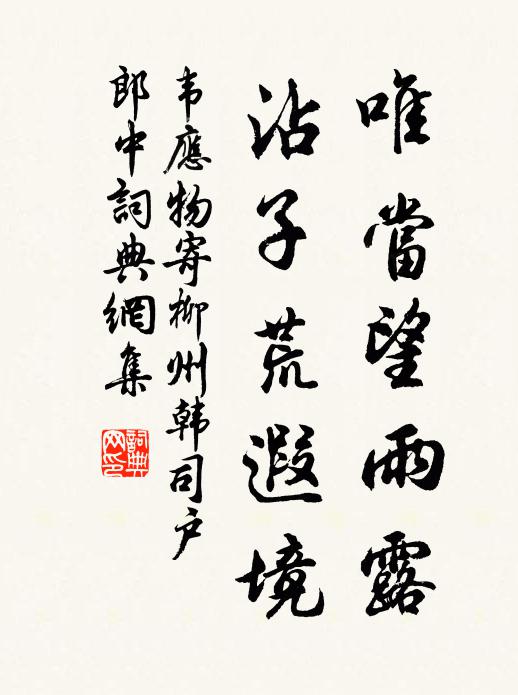 唯當望雨露
沾子荒遐境
韦應物寄柳州韩司户
郎中詞典網集
詞典网印